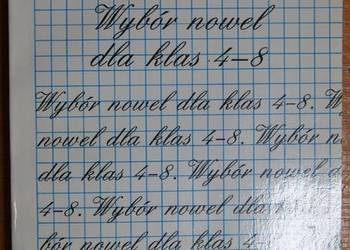 Wybór nowel
dla klas 4-8
Wybór nowel dla klas 4-8. W
nowel dla klas 4-8. Wybór n
dla klas 4-8. Wybór nowel d
4-8. Wybór nowel dla
bór nowel dla klas 4